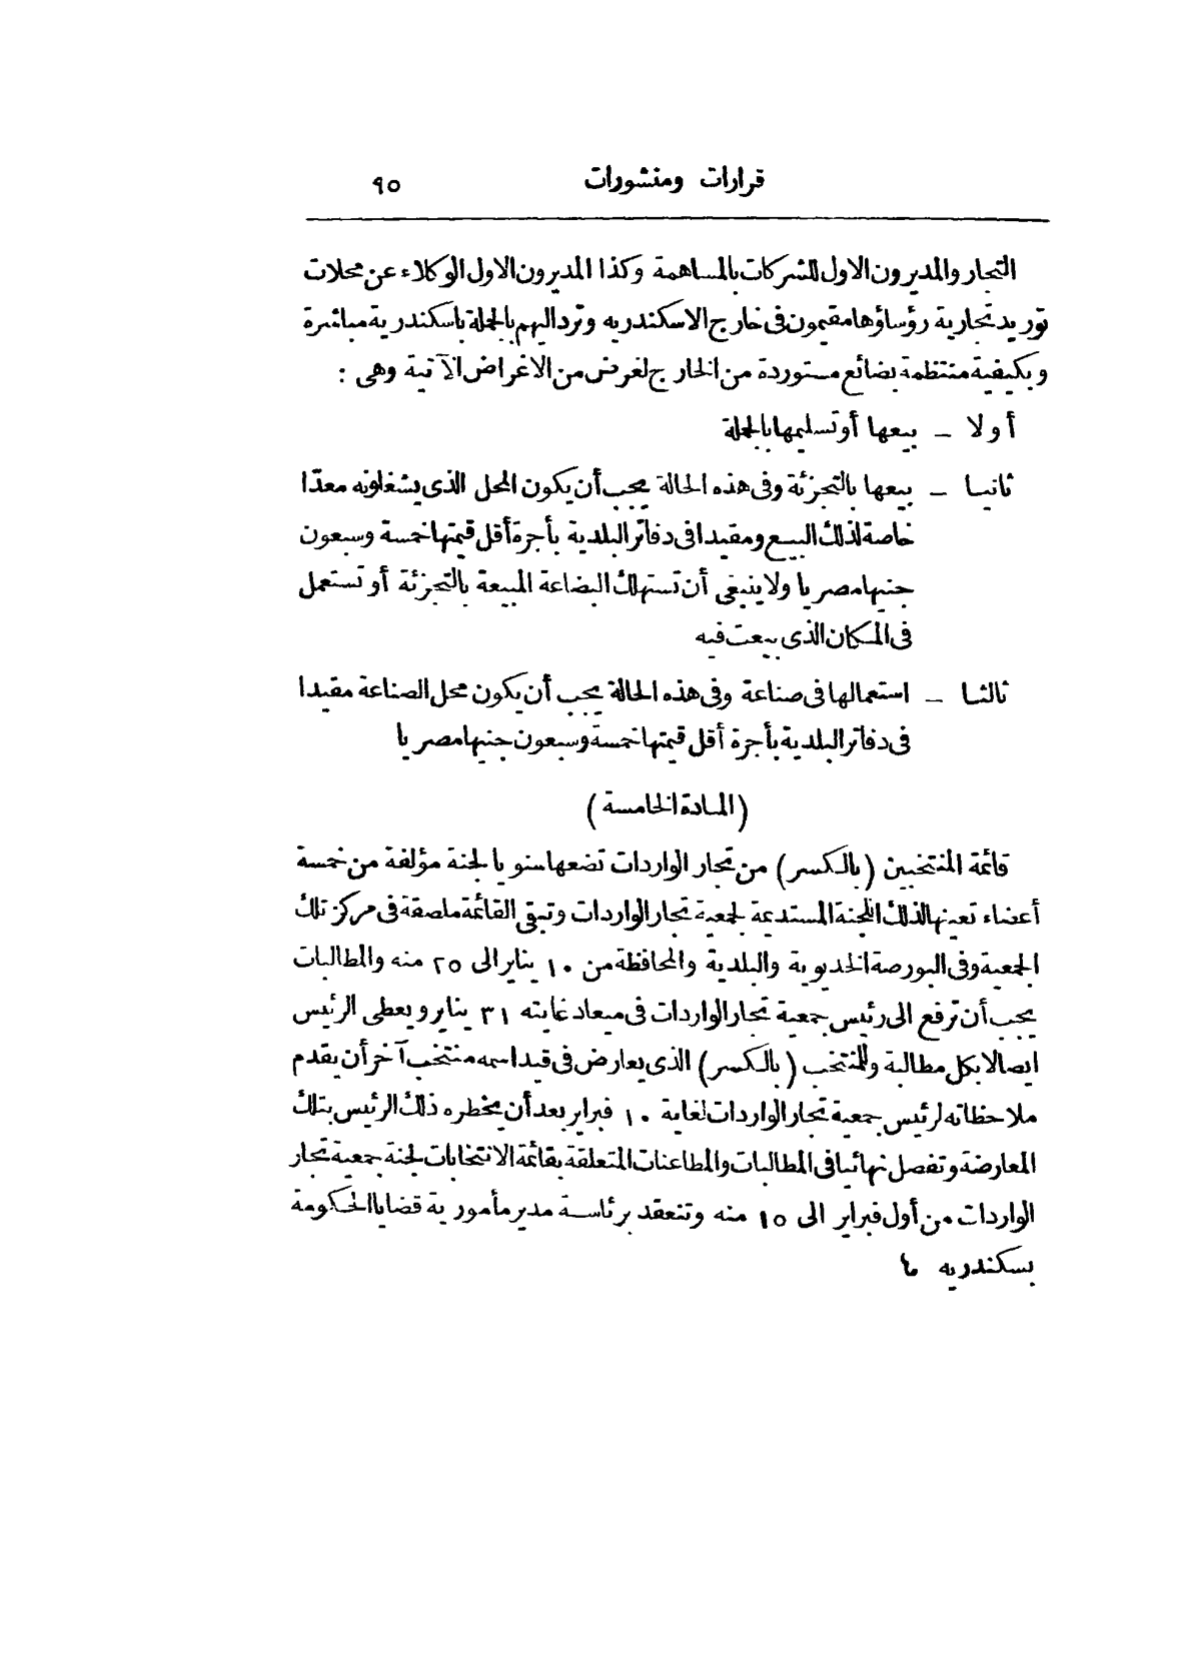 قرارات ومنشورات ٩٥
التجار والمديرون الاول للشركات بالمساهمة وكذا المديرون الاول الوكلاء عن محلات
توريد تجارية رؤساؤها مقيمون فى خارج الاسكندريه وترد اليهم بالجملة باسكندرية مباشرة
وبكيفية منتظمة بضائع مستوردة من الخارج لغرض من الاغراض الآتية وهى :
أولا – بيعها أو تسليمها بالجملة
ثانيا – بيعها بالتجزئة وفى هذه الحالة يجب أن يكون المحل الذى يشغلونه معدّا
خاصة لذلك البيع ومقيدا فى دفاتر البلدية بأجرة أقل قيمتها خمسة وسبعون
جنيها مصريا ولا ينبغى أن تستهلك البضاعة المبيعة بالتجزئة أو تستعمل
فى المكان الذى بيعت فيه
ثالثا – استعمالها فى صناعة وفى هذه الحالة يجب أن يكون محل الصناعة مقيدا
فى دفاتر البلدية بأجرة أقل قيمتها خمسة وسبعون جنيها مصريا
(المادة الخامسة)
قائمة المنتخبين (بالكسر) من تجار الواردات تضعها سنويا لجنة مؤلفة من خمسة
أعضاء تعينها لذلك اللجنة المستدعة لجمعية تجار الواردات وتبقى القائمة ملصقة فى مركز تلك
الجمعية وفى البورصة الخديوية والبلدية والمحافظة من ١٠ يناير الى ٢٥ منه والمطالبات
يجب أن ترفع الى رئيس جمعية تجار الواردات فى ميعاد غايته ٣١ يناير ويعطى الرئيس
ايصالا بكل مطالبة وللمنتخب (بالكسر) الذى يعارض فى قيد اسمه منتخب آخر أن يقدم
ملاحظاته لرئيس جمعية تجار الواردات لغاية ١٠ فبراير بعد أن يخطره ذلك الرئيس بتلك
المعارضة وتفصل نهائيا فى المطالبات والمطاعنات المتعلقة بقائمة الانتخابات لجنة جمعية تجار
الواردات من أول فبراير الى ١٥ منه وتنعقد برئاسة مدير مأمورية قضايا الحكومة
بسكندريه